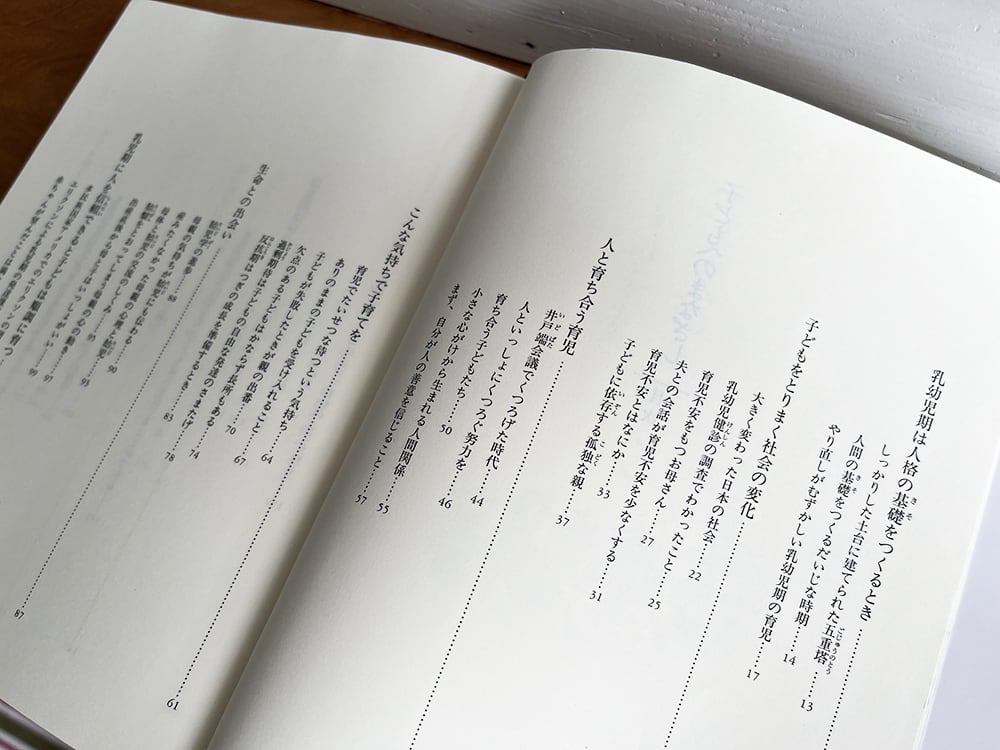 乳幼児期は人格の基礎をつくるとき
しっかりした土台に建てられた五重塔……13
人間の基礎をつくるだいじな時期……14
やり直しがむずかしい乳幼児期の育児……17
子どもをとりまく社会の変化
大きく変わった日本の社会……22
乳幼児健診の調査でわかったこと……25
育児不安をもつお母さん……27
夫との会話が育児不安を少なくする……31
育児不安とはなにか……33
子どもに依存する孤独な親……37
人と育ち合う育児
井戸端会議でくつろげた時代……44
人といっしょにくつろぐ努力を……46
育ち合う子どもたち……50
小さな心がけから生まれる人間関係……55
まず、自分が人の善意を信じること……57
こんな気持ちで子育てを……61
育児でたいせつな待つという気持ち……64
ありのままの子どもを受け入れること……67
子どもが失敗したときが親の出番……70
欠点のある子どもはかならず長所もある……74
過剰期待は子どもの自由な発達のさまたげ……78
反抗期はつぎの成長を準備するとき……83
生命との出会い……87
胎児学の進歩……88
母親の気持ちが胎児にも伝わる……90